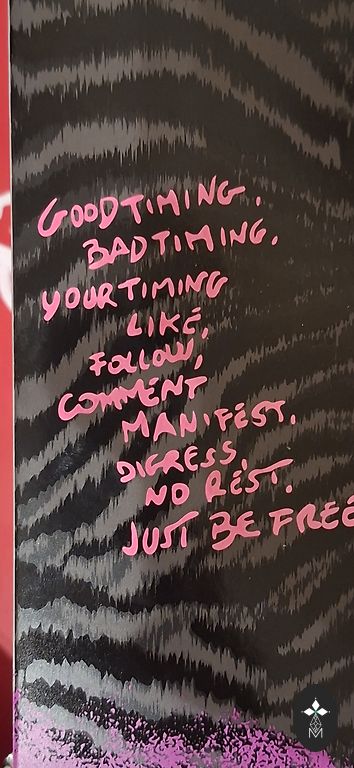 GOOD TIMING.
BAD TIMING.
YOUR TIMING
LIKE,
FOLLOW,
COMMENT
MANIFEST.
DIGRESS,
NO REST.
JUST BE FREE